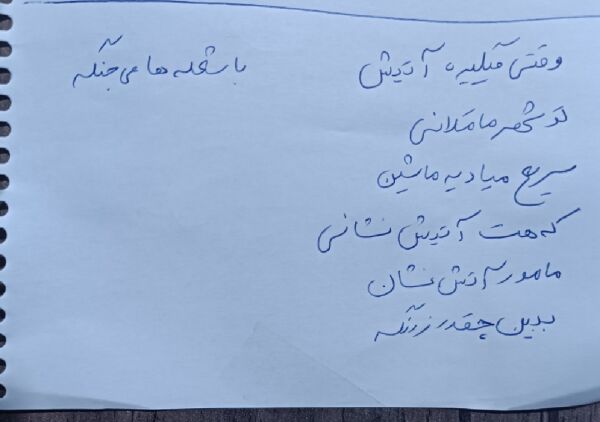 وقتی میگیره آتیش
تو شهر ما مکانی
سریع میاد یه ماشین
که هست آتیش نشانی
مامور آتش نشان
ببین چقدر زرنگه
با شعله ها می جنگه